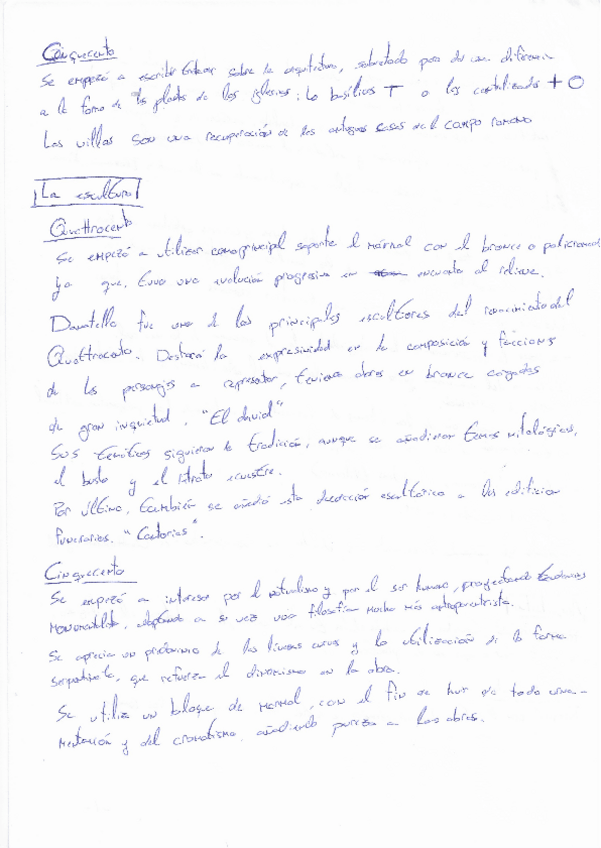 Cinquecento
Se empezó a escribir sobre la arquitectura, sobretodo por de una diferencia
a la forma de las plantas de las iglesias: la basílicas T o las centralizadas + O
Las villas son una recuperación de las antiguas casas del campo romano
La escultura
Quattrocento
Se empezó a utilizar como principal soporte el mármol con el bronce o policromado
ya que, tuvo una evolución progresiva en encuanto al relieve.
Donatello fue uno de los principales escultores del renacimiento del
Quattrocento. Destacó la expresividad en la composición y facciones
de los personajes a representar, teniendo obras en bronce cargadas
de gran inquietud. "El david"
Sus temáticas siguieron la tradición, aunque se añadieron temas mitológicos,
el busto y el retrato ecuestre.
Por último, también se añadió esta decoración escultórica a los edificios
funerarios. "Cantorias".
Cinquecento
Se empezó a interesar por el naturalismo y por el ser humano, proyectando
monumentalidad, adoptando a su vez una filosofía mucho más antropocentrista.
Se aprecia un predominio de las líneas curvas y la utilización de la forma
serpentinata, que refuerza el dinamismo en la obra.
Se utiliza un bloque de marmol, con el fin de huir de toda orna-
mentación y del cromatismo. añadiendo pureza a las obras.